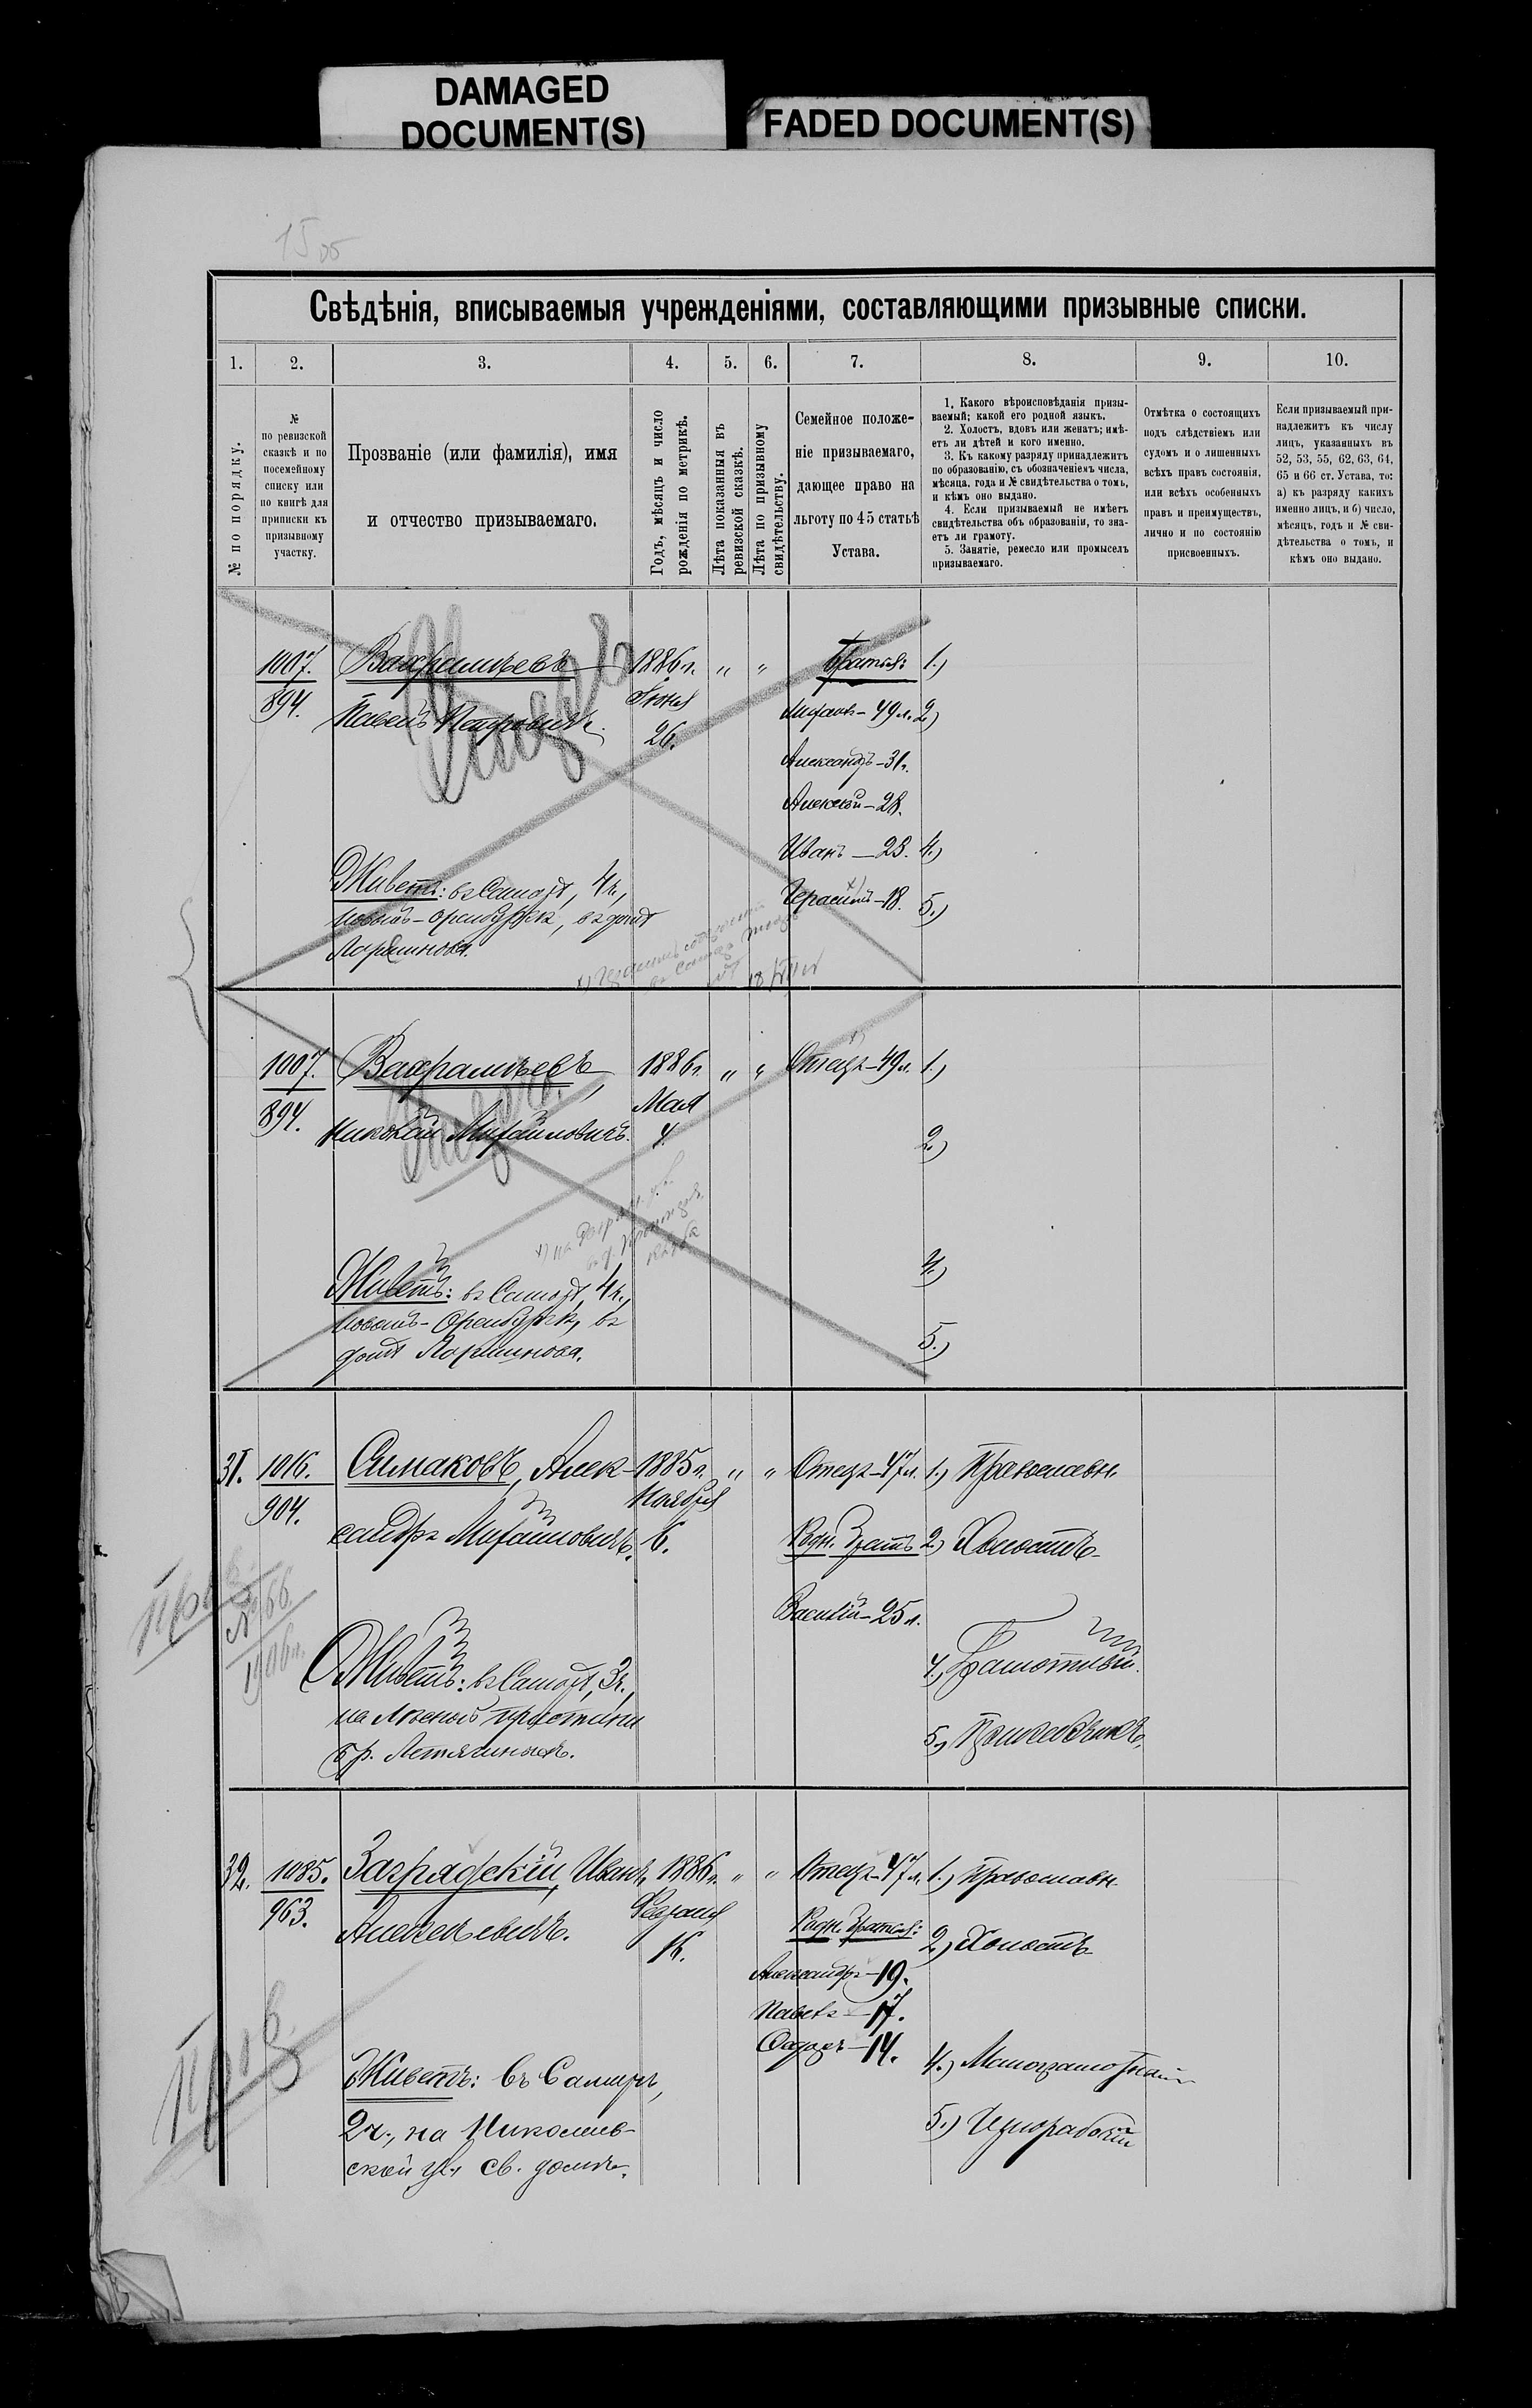 DAMAGED
DOCUMENT(S)
FADED DOCUMENT(S)
Свѣдѣнія, вписываемыя учрежденіями, составляющими призывные списки.
1. 2. 3. 4. 5. 6. 7. 8. 9. 10.
№ по порядку.
№
по ревизской
сказкѣ и по
посемейному
списку или
по книгѣ для
приписки къ
призывному
участку.
Прозваніе (или фамилія), имя
и отчество призываемаго.
Годъ, мѣсяцъ и число
рожденія по метрикѣ.
Лѣта показанныя въ
ревизской сказкѣ.
Лѣта по призывному
свидѣтельству.
Семейное положе-
ніе призываемаго,
дающее право на
льготу по 45 статьѣ
Устава.
1. Какого вѣроисповѣданія призы-
ваемый; какой его родной языкъ.
2. Холостъ, вдовъ или женатъ; имѣ-
етъ ли дѣтей и кого именно.
3. Къ какому разряду принадлежитъ
по образованію, съ обозначеніемъ числа,
мѣсяца, года и № свидѣтельства о томъ,
и кѣмъ оно выдано.
4. Если призываемый не имѣетъ
свидѣтельства объ образованіи, то зна-
етъ ли грамоту.
5. Занятіе, ремесло или промыселъ
призываемаго.
Отмѣтка о состоящихъ
подъ слѣдствіемъ или
судомъ и о лишенныхъ
всѣхъ правъ состоянія,
или всѣхъ особенныхъ
правъ и преимуществъ,
лично и по состоянію
присвоенныхъ.
Если призываемый при-
надлежитъ къ числу
лицъ, указанныхъ въ
52, 53, 55, 62, 63, 64,
65 и 66 ст. Устава, то:
а) къ разряду какихъ
именно лицъ, и б) число,
мѣсяцъ, годъ и № сви-
дѣтельства о томъ, и
кѣмъ оно выдано.
1007. Вахрамѣевъ 1886 г. " " Братья: 1.)
894. Павелъ Петровичъ. Іюня 26.
49 л. 2.)
Александръ - 31 г.
Алексѣй - 28.
Иванъ - 23. 4.)
Герасимъ - 18. 5.)
Живетъ: въ Самарѣ, 4 ч.,
въ домѣ
1007. Вахрамѣевъ, 1886 г. " " Отецъ - 49 л. 1.)
894. Николай Михайловичъ. Мая 4.
2.)
4.)
Живетъ: въ Самарѣ, 4 ч.,
въ
домѣ
5.)
31. 1016. Симаковъ, Алек- 1885 г. " " Отецъ - 47 л. 1.) Православн.
904. сандръ Михайловичъ. Ноября 6.
Родн. братъ 2.) Холостъ
Василій - 25 л.
Призв.
№ 66
1906 г.
4.) Грамотный.
Живетъ: въ Самарѣ, 3 ч.,
на Лѣсной пристани
бр.
5.)
32. 1085. Заградскій, Иванъ 1886 г. " " Отецъ - 47 л. 1.) Православн.
963. Алексѣевичъ. Февраля 16.
Родн. братья: 2.) Холостъ
Александръ - 19.
Павелъ - 17.
Ѳедоръ - 14.
4.) Малограмотный
Живетъ: въ Самарѣ,
5.) Чернорабочій
2 ч., на Николаев-
ской ул., св. домъ.